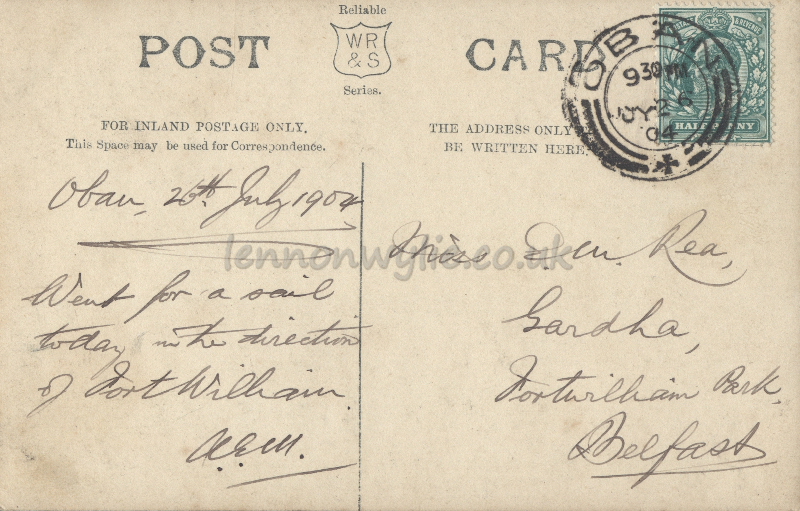 POST CARD
Reliable
WR
& S
Series.
FOR INLAND POSTAGE ONLY.
This Space may be used for Correspondence.
THE ADDRESS ONLY
BE WRITTEN HERE.
OBAN
930PM
JY 26
04
HALFPENNY
Oban, 26th July 1904
Went for a sail
today in the direction
of Fort William.
A.E.M.
Miss E. M. Rea,
Gardha,
Fortwilliam Park,
Belfast
lennonwylie.co.uk